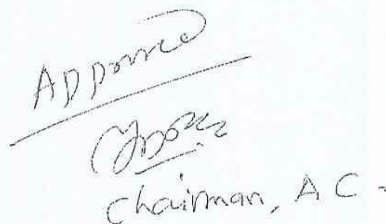 Approved
Chairman, A C -